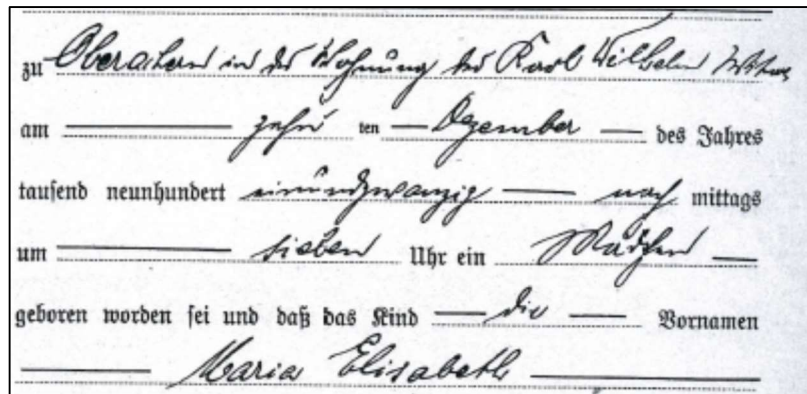 zu Oberachern in der Wohnung des Karl Wilhelm
am zehn ten Dezember des Jahres
tausend neunhundert einundzwanzig nach mittags
um sieben Uhr ein Mädchen
geboren worden sei und daß das Kind die Vornamen
Maria Elisabeth